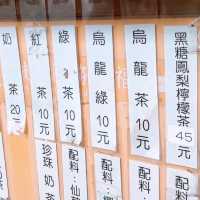 黑糖鳳梨檸檬茶45元
烏龍茶10元
烏龍綠茶10元
綠茶10元
紅茶10元
奶茶20元
配料：
配料：
配料：仙草
珍珠奶茶